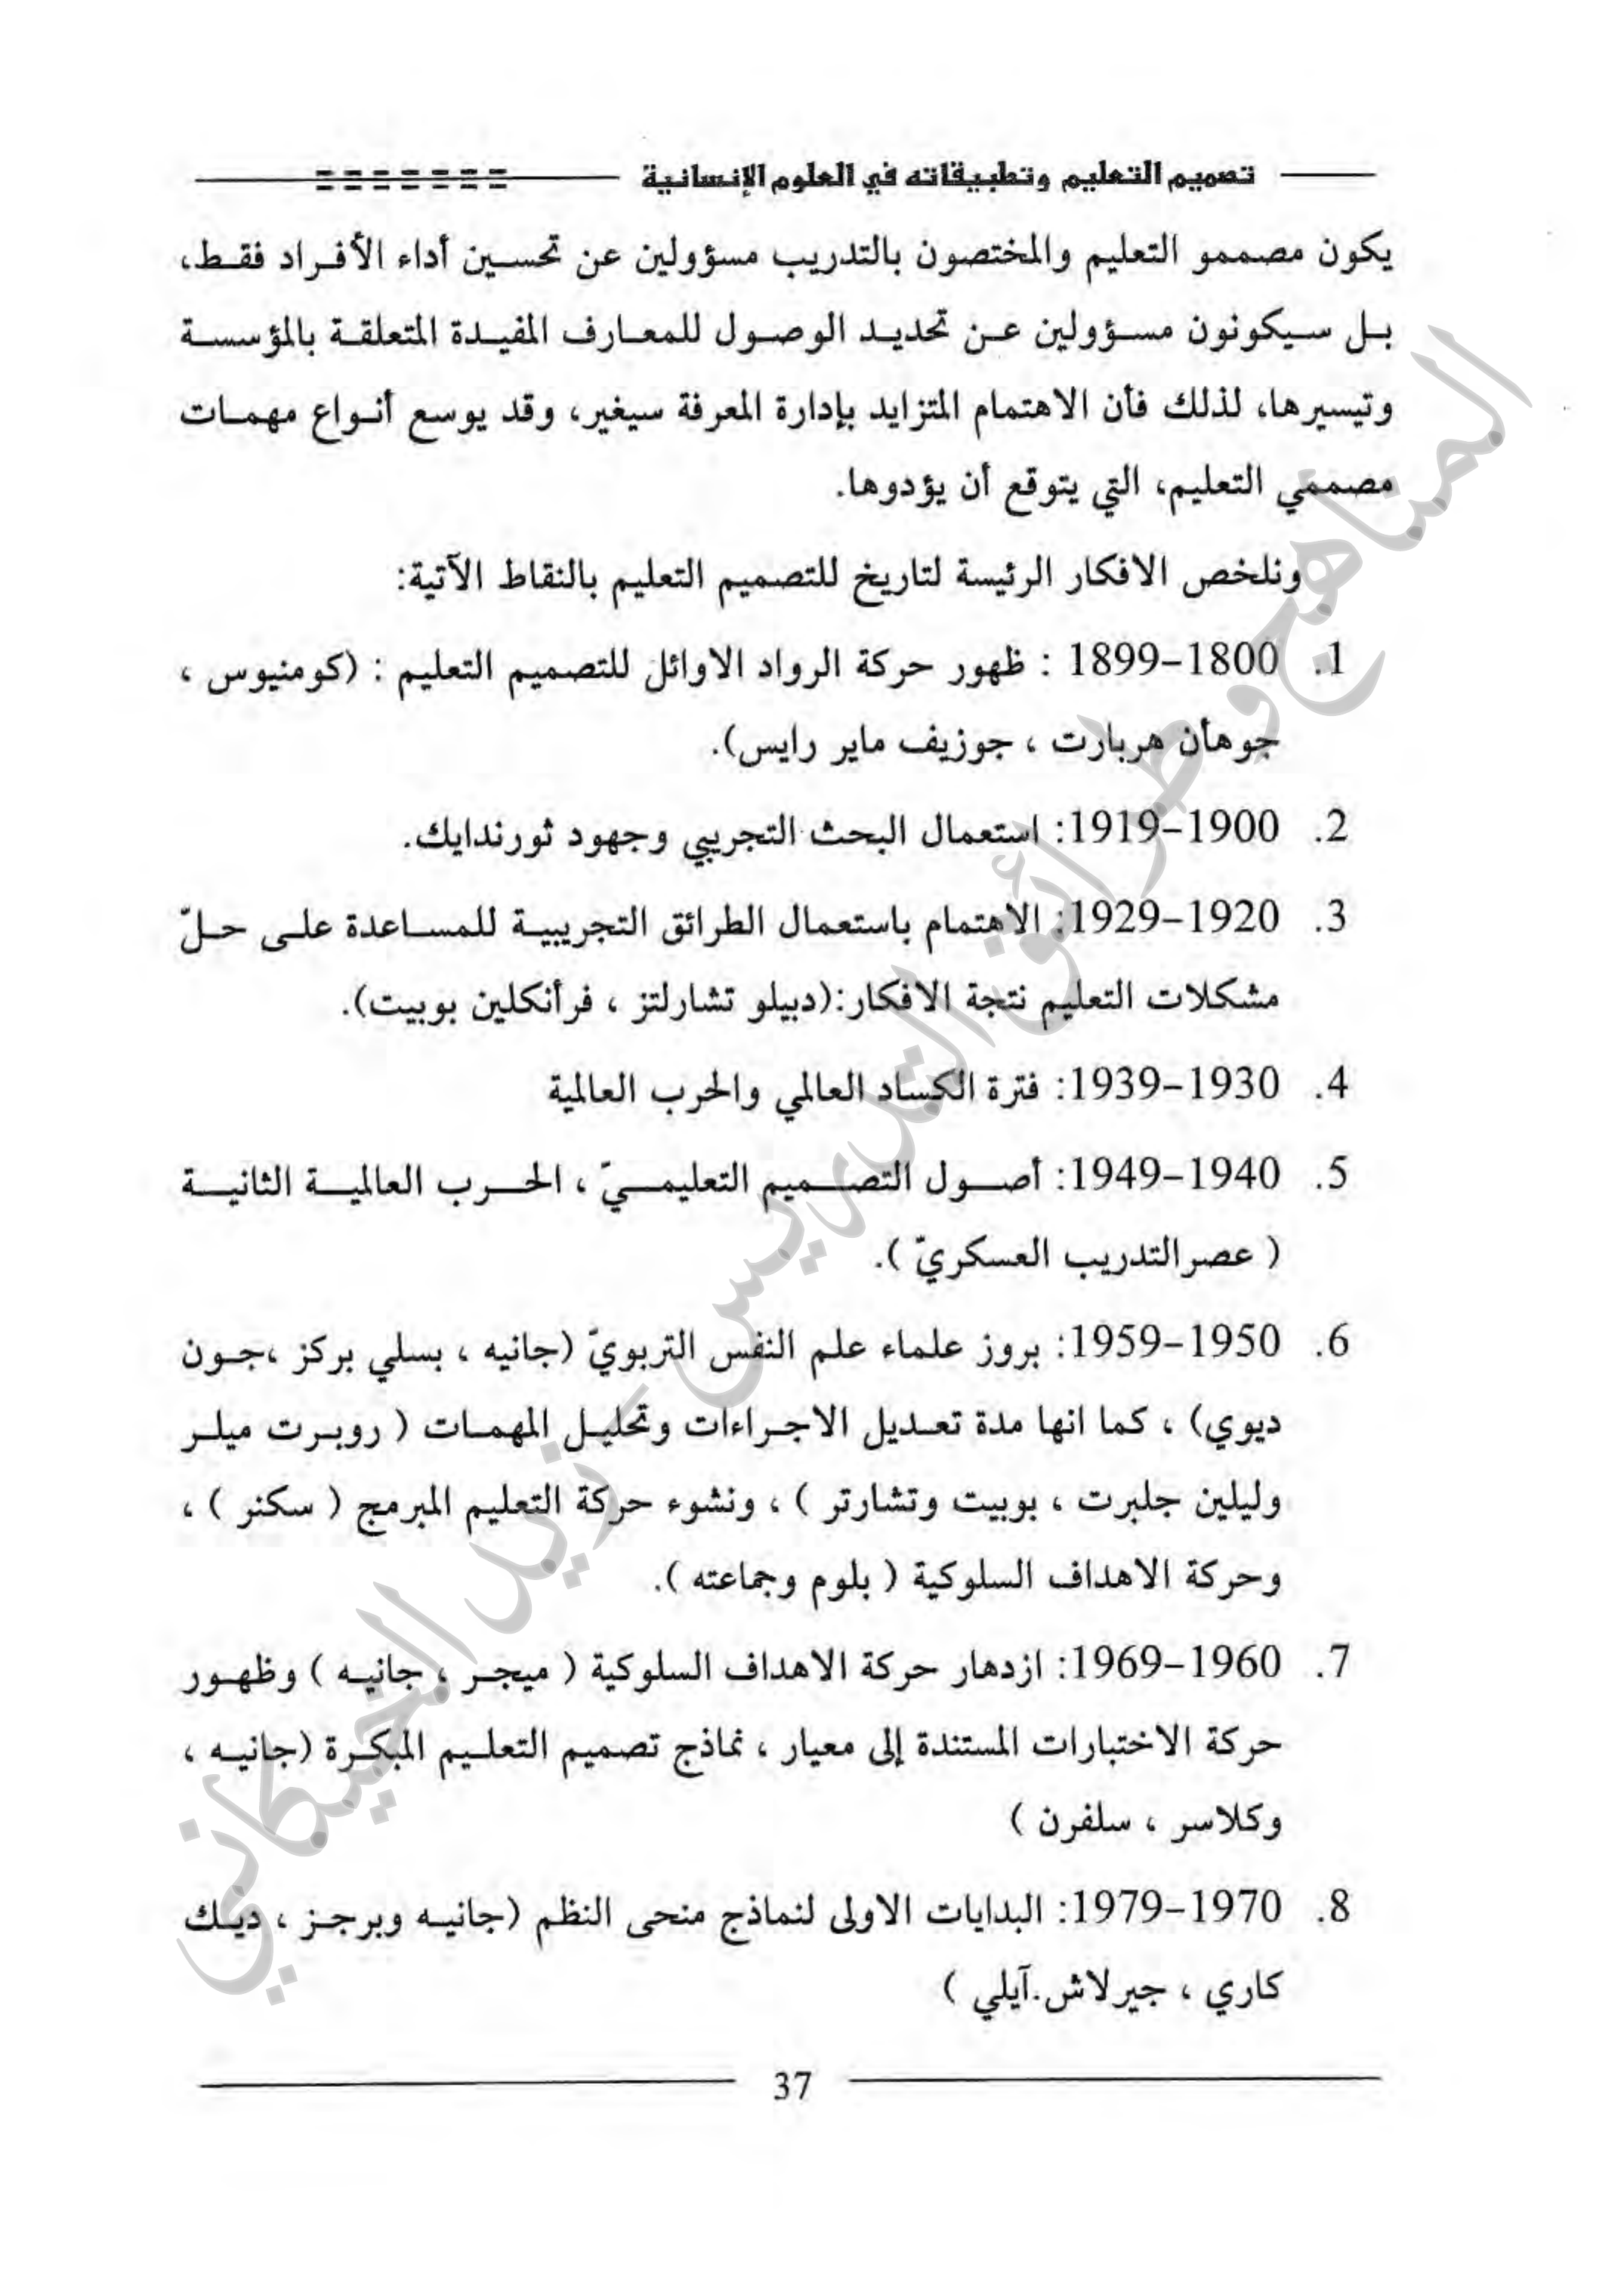 تصميم التعليم وتطبيقاته في العلوم الإنسانية
يكون مصممو التعليم والمختصون بالتدريب مسؤولين عن تحسين أداء الأفراد فقط،
بل سيكونون مسؤولين عن تحديد الوصول للمعارف المفيدة المتعلقة بالمؤسسة
وتيسيرها، لذلك فأن الاهتمام المتزايد بإدارة المعرفة سيغير، وقد يوسع أنواع مهمات
مصممي التعليم، التي يتوقع أن يؤدوها.
ونلخص الافكار الرئيسة لتاريخ للتصميم التعليم بالنقاط الآتية:
1. 1800-1899 : ظهور حركة الرواد الاوائل للتصميم التعليم : (كومنيوس ،
جوهأن هربارت ، جوزيف ماير رايس).
2. 1900-1919: استعمال البحث التجريبي وجهود ثورندايك.
3. 1920-1929: الاهتمام باستعمال الطرائق التجريبية للمساعدة على حلّ
مشكلات التعليم نتجة الافكار:(دبيلو تشارلتز ، فرأنكلين بوبيت).
4. 1930-1939: فترة الكساد العالمي والحرب العالمية
5. 1940-1949: أصول التصميم التعليميّ ، الحرب العالمية الثانية
( عصرالتدريب العسكريّ ).
6. 1950-1959: بروز علماء علم النفس التربويّ (جانيه ، بسلي بركز ،جون
ديوي) ، كما انها مدة تعديل الاجراءات وتحليل المهمات ( روبرت ميلر
وليلين جلبرت ، بوبيت وتشارتر ) ، ونشوء حركة التعليم المبرمج ( سكنر ) ،
وحركة الاهداف السلوكية ( بلوم وجماعته ).
7. 1960-1969: ازدهار حركة الاهداف السلوكية ( ميجر ، جانيه ) وظهور
حركة الاختبارات المستندة إلى معيار ، نماذج تصميم التعليم المبكرة (جانيه ،
وكلاسر ، سلفرن )
8. 1970-1979: البدايات الاولى لنماذج منحى النظم (جانيه وبرجز ، ديك
كاري ، جيرلاش.آيلي )
37
المناهج وطرائق التدريس - زيد الخيكاني